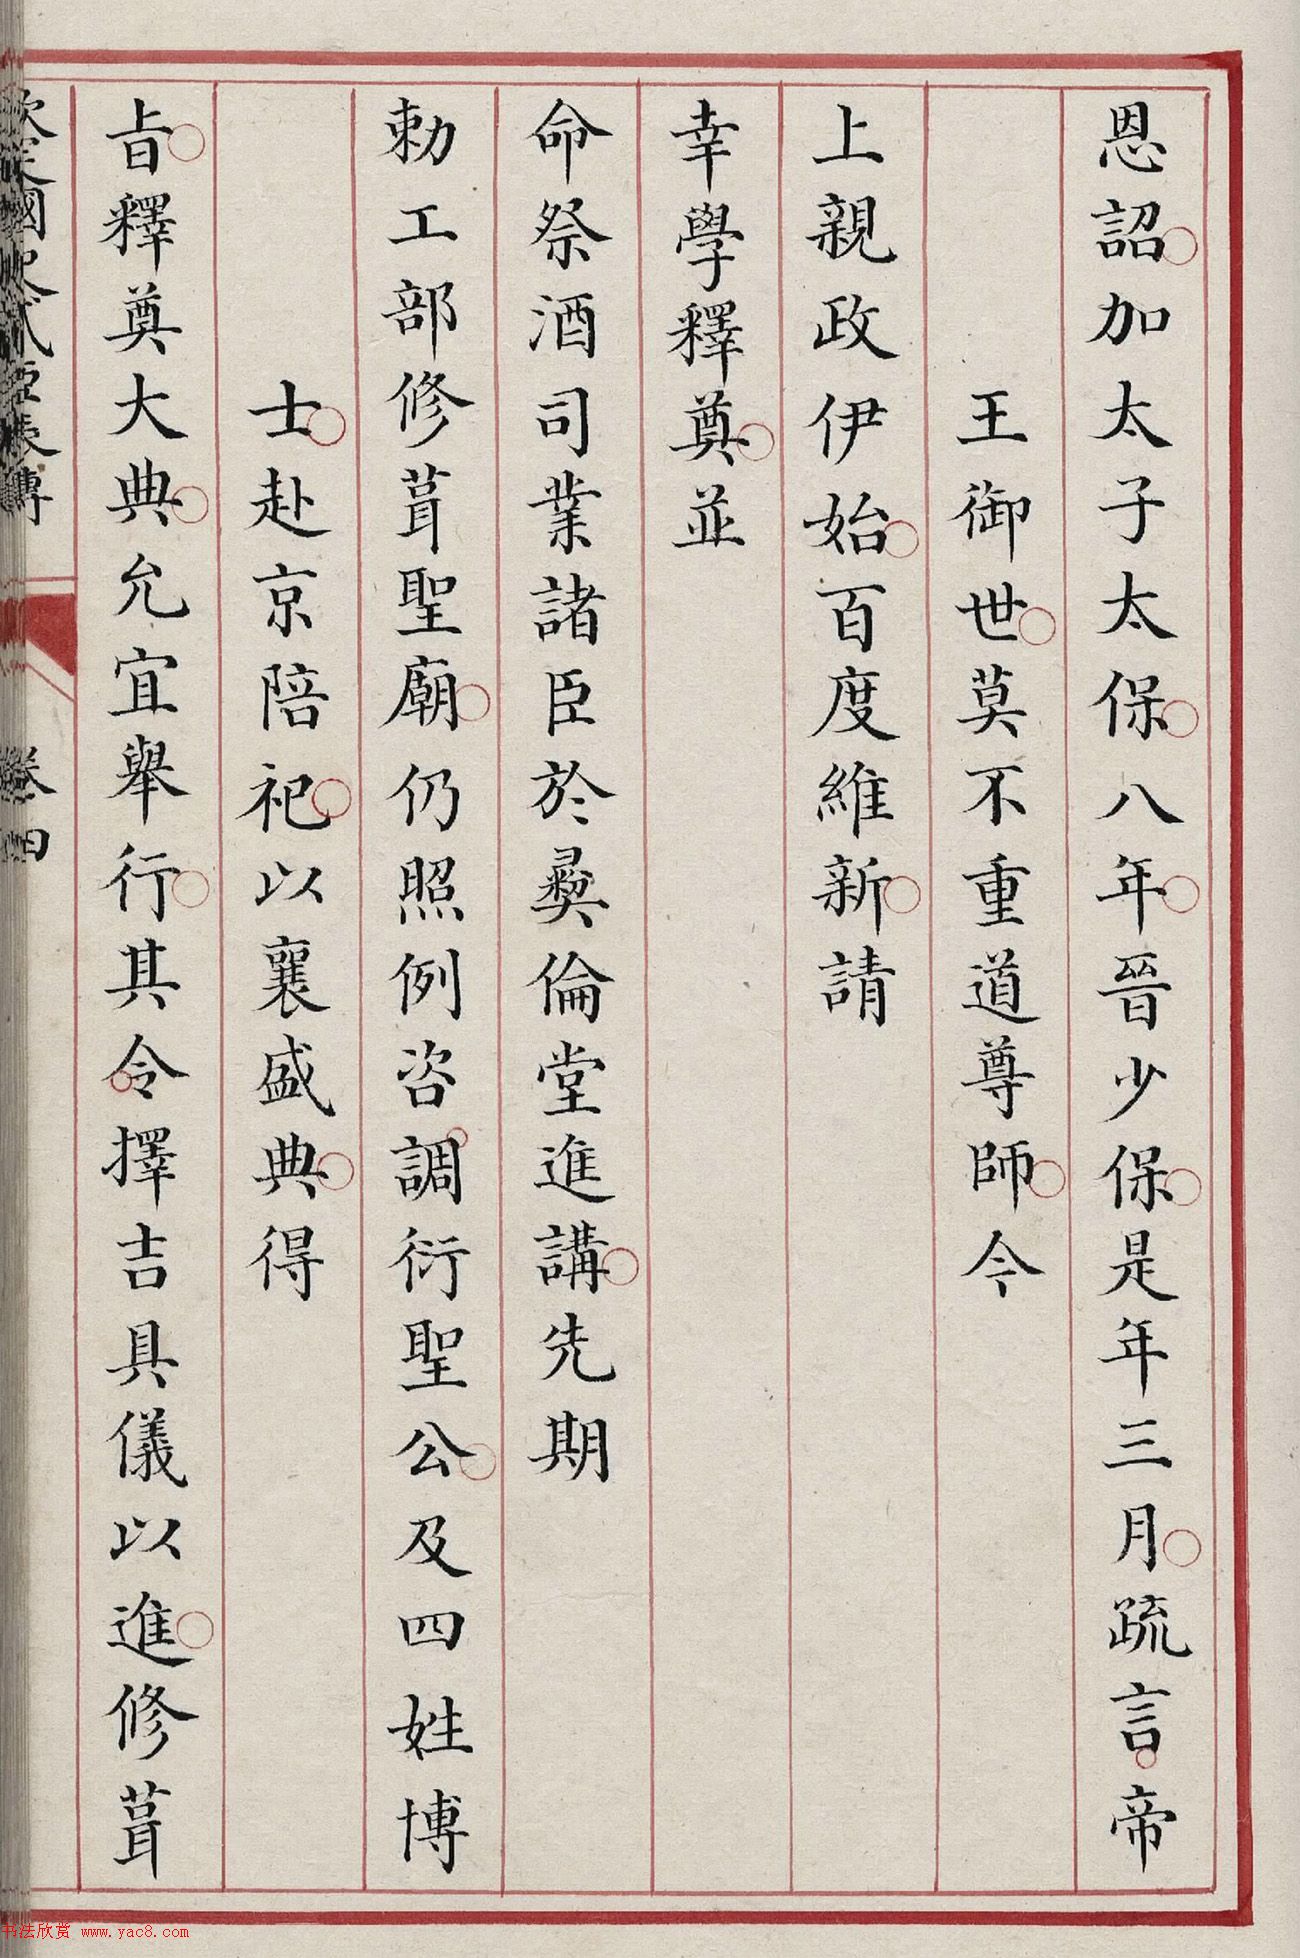 恩詔加太子太保八年晉少保是年三月疏言帝
王御世莫不重道尊師今
上親政伊始百度維新請
幸學釋奠並
命祭酒司業諸臣於彝倫堂進講先期
勅工部修葺聖廟仍照例咨調衍聖公及四姓博
士赴京陪祀以襄盛典得
旨釋奠大典允宜舉行其令擇吉具儀以進修葺
欽定國史貳臣表傳 卷四
书法欣赏 www.yac8.com